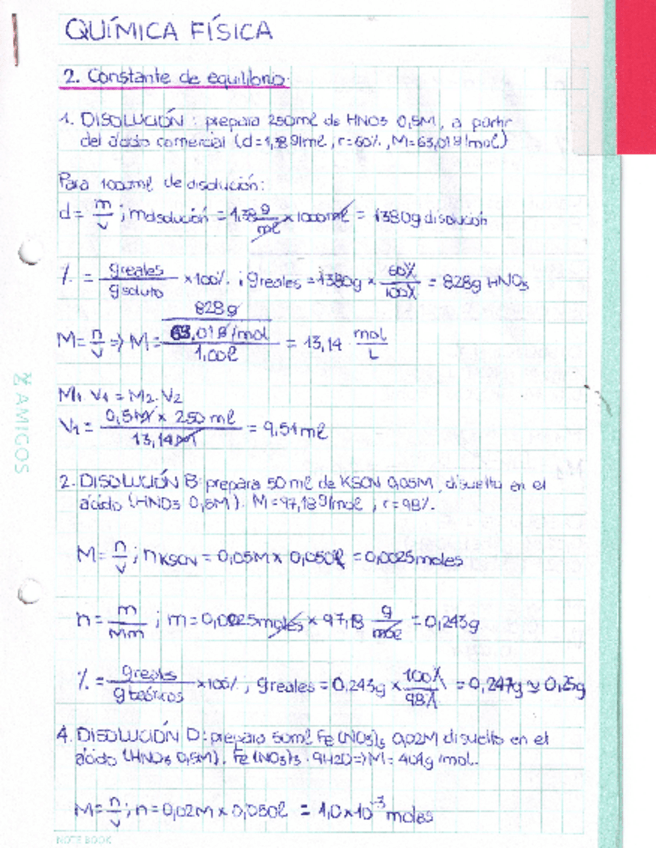 QUÍMICA FÍSICA
2. Constante de equilibrio.
1. DISOLUCIÓN: prepara 250ml de HNO3 0,5M, a partir
del ácido comercial (d=1,38g/ml, r=60%, M=63,01g/mol)
Para 1000ml de disolución:
d = m/v ; mdisolución = 1,38 g/ml × 1000ml = 1380g disolución
% = greales/gsoluto × 100% ; greales = 1380g × 60%/100% = 828g HNO3
M = n/v => M = (828g / 63,01g/mol) / 1,00l = 13,14 mol/L
M1 · V1 = M2 · V2
V1 = 0,5M × 250ml / 13,14M = 9,51ml
AMIGOS
2. DISOLUCIÓN B: prepara 50ml de KSCN 0,05M, disuelto en el
ácido (HNO3 0,5M). M=97,18g/mol, r=98%.
M = n/v ; nKSCN = 0,05M × 0,050l = 0,0025 moles
n = m/Mm ; m = 0,0025 moles × 97,18 g/mol = 0,243g
% = greales/gteóricos × 100% ; greales = 0,243g × 100%/98% = 0,247g ≃ 0,25g
4. DISOLUCIÓN D: prepara 50ml Fe(NO3)3 0,02M disuelto en el
ácido (HNO3 0,5M). Fe(NO3)3 · 9H2O => M = 404g/mol.
M = n/v ; n = 0,02M × 0,050l = 1,0×10⁻³ moles
NOTE BOOK